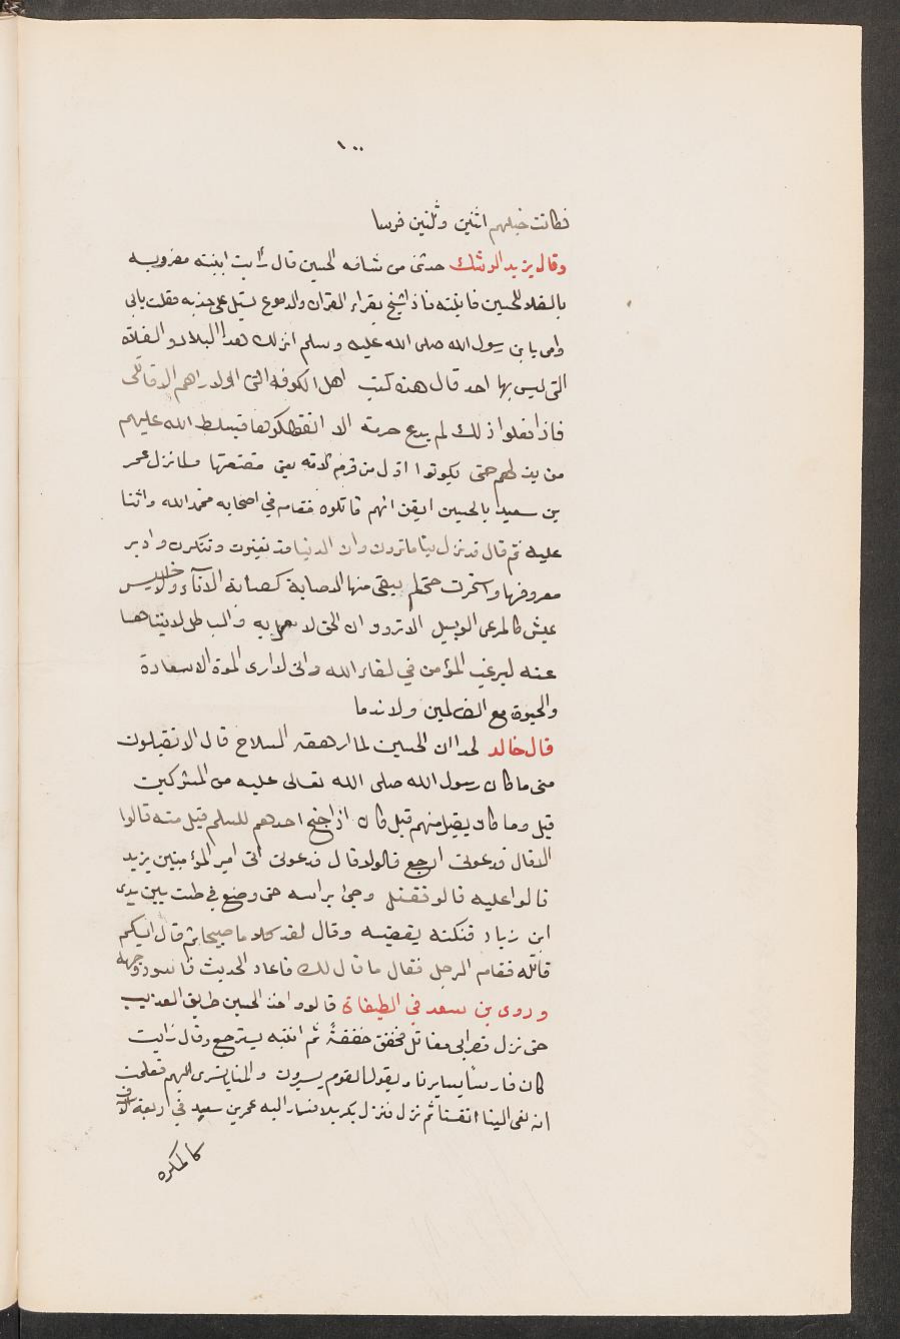 ١٠٠
فكانت خيلهم اثنين وثلثين فرسا
وقال يزيد الرشك حدثنى من شافه الحسين قال رأيت ابنيته مضروبه
بالفلاة للحسين فاتيته فاذا شيخ يقراء القران والدموع تسيل على خديه فقلت بابى
وامى يا بن رسول الله صلى الله عليه وسلم انزلك هذا البلاد والفلاة
التى ليس بها احد قال هذه كتب اهل الكوفه الى ولا اراهم الا قاتلى
فاذا فعلوا ذلك لم يدع حرمة الا انتهكوها فيسلط الله عليهم
من يذلهم حتى يكونوا اذل من فرم الامه يعنى مقنعتها ولما نزل عمر
بن سعيد بالحسين ايقن انهم قاتلوه فقام في اصحابه فحمد الله واثنا
عليه ثم قال قد نزل بنا ما ترون وان الدنيا قد تغيرت وتنكرت وادبر
معروفها و حتى لم يبقى منها الا صبابة كصبابة الاناء ولا خسيس
عيش كالمرعى الوبيل الا ترو ان الحق لا يعمل به والباطل لا يتناها
عنه ليرغب المؤمن في لقاء الله وانى لا ارى الموة الا سعادة
والحيوة مع الظلمين ولا ندما
قال خالد الحسين لما ارهقه السلاح قال الا تقبلون
منى ما كان رسول الله صلى الله تعالى عليه من المشركين
قيل وما كان يقبل منهم قيل كان اذا جنح احدهم للسلم قبل منه قالوا
لا قال فدعونى ارجع قالو لا قال فدعونى اتى امير المؤمنين يزيد
قالوا عليه قالو فقتل وجئ براسه حتى وضع في طست بين يدى
ابن زياد فنكته بقضيبه وقال لقد كان غلاما صبيحا ثم قال ايكم
قاتله فقام الرجل فقال ما قال لك فاعاد الحديث فاسود وجهه
وروى بن سعد في الطبقات قالوا واخذ الحسين طريق العذيب
حتى نزل قصر ابى مقاتل فخفق خفقةً ثم انتبه يسترجع وقال رأيت
كان فارسا يسايرنا ويقول القوم يسيرون والمنايا تسرى اليهم فعلمت
انه نعى الينا انفسنا ثم نزل فنزل بكربلا فسار اليه عمر بن سعيد في اربعة الاف
كالمكره